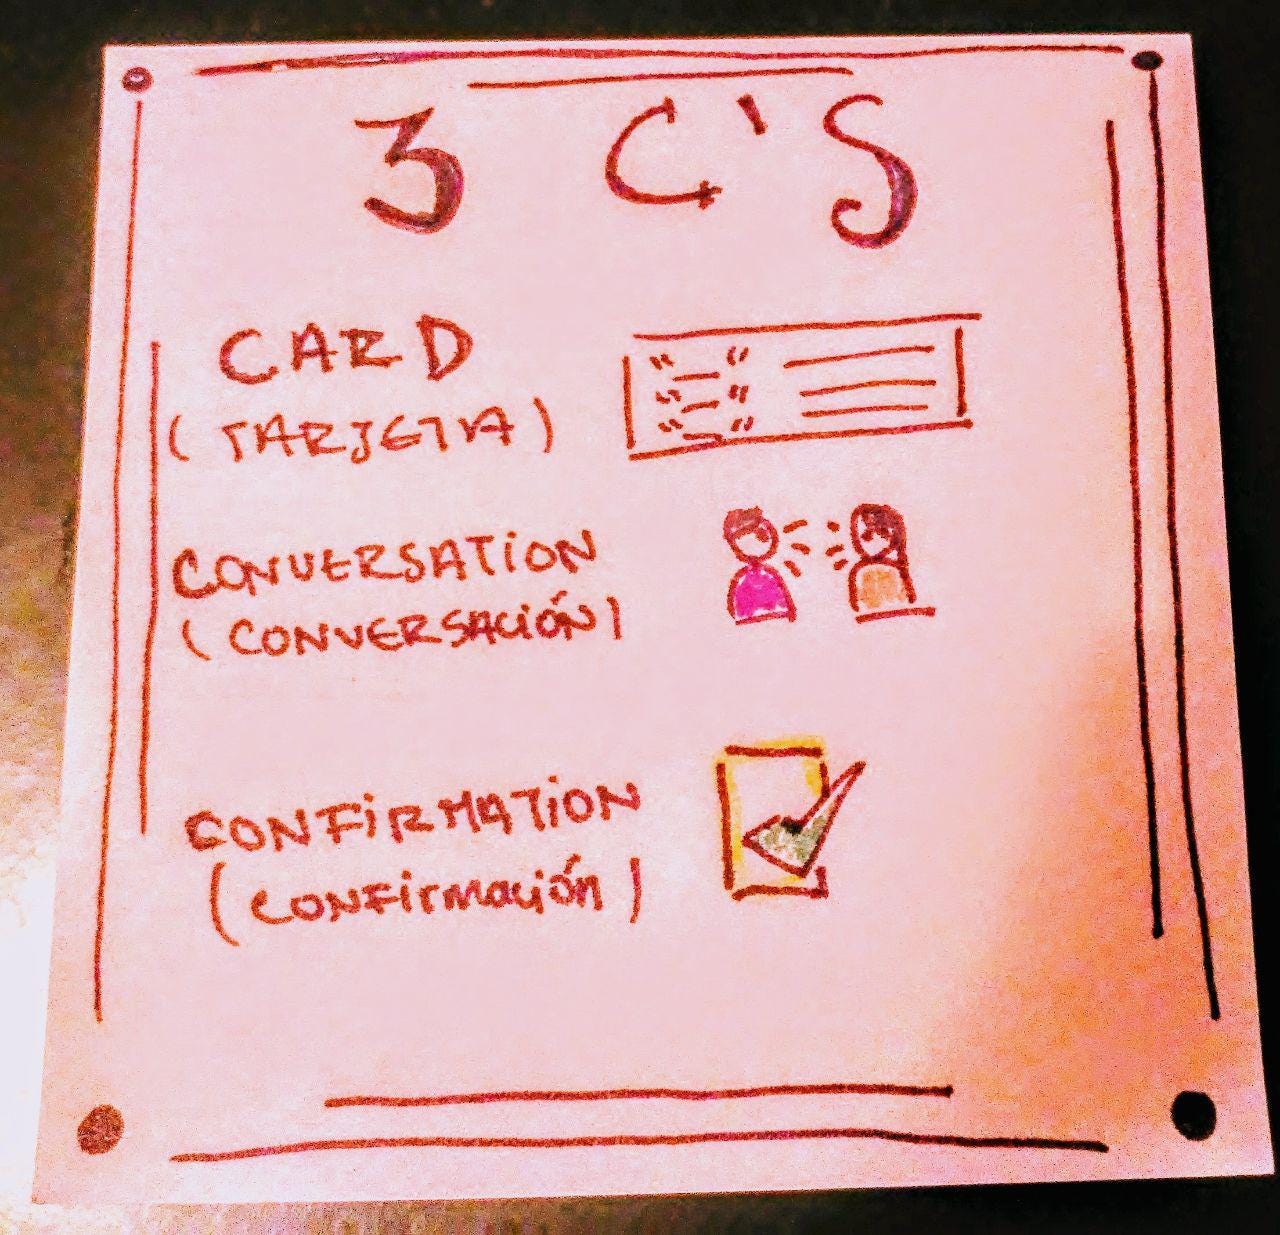 3 C'S
CARD
(TARJETA)
CONVERSATiON
(CONVERSACiÓN)
CONFiRMATiON
(CONFirmación)